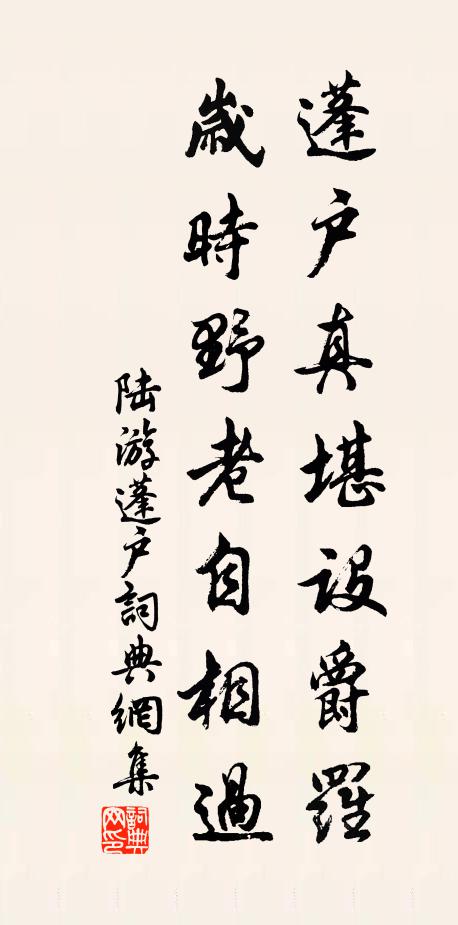 蓬户真堪設爵羅
歲時野老自相過
陆游蓬户詞典網集
詞典网印